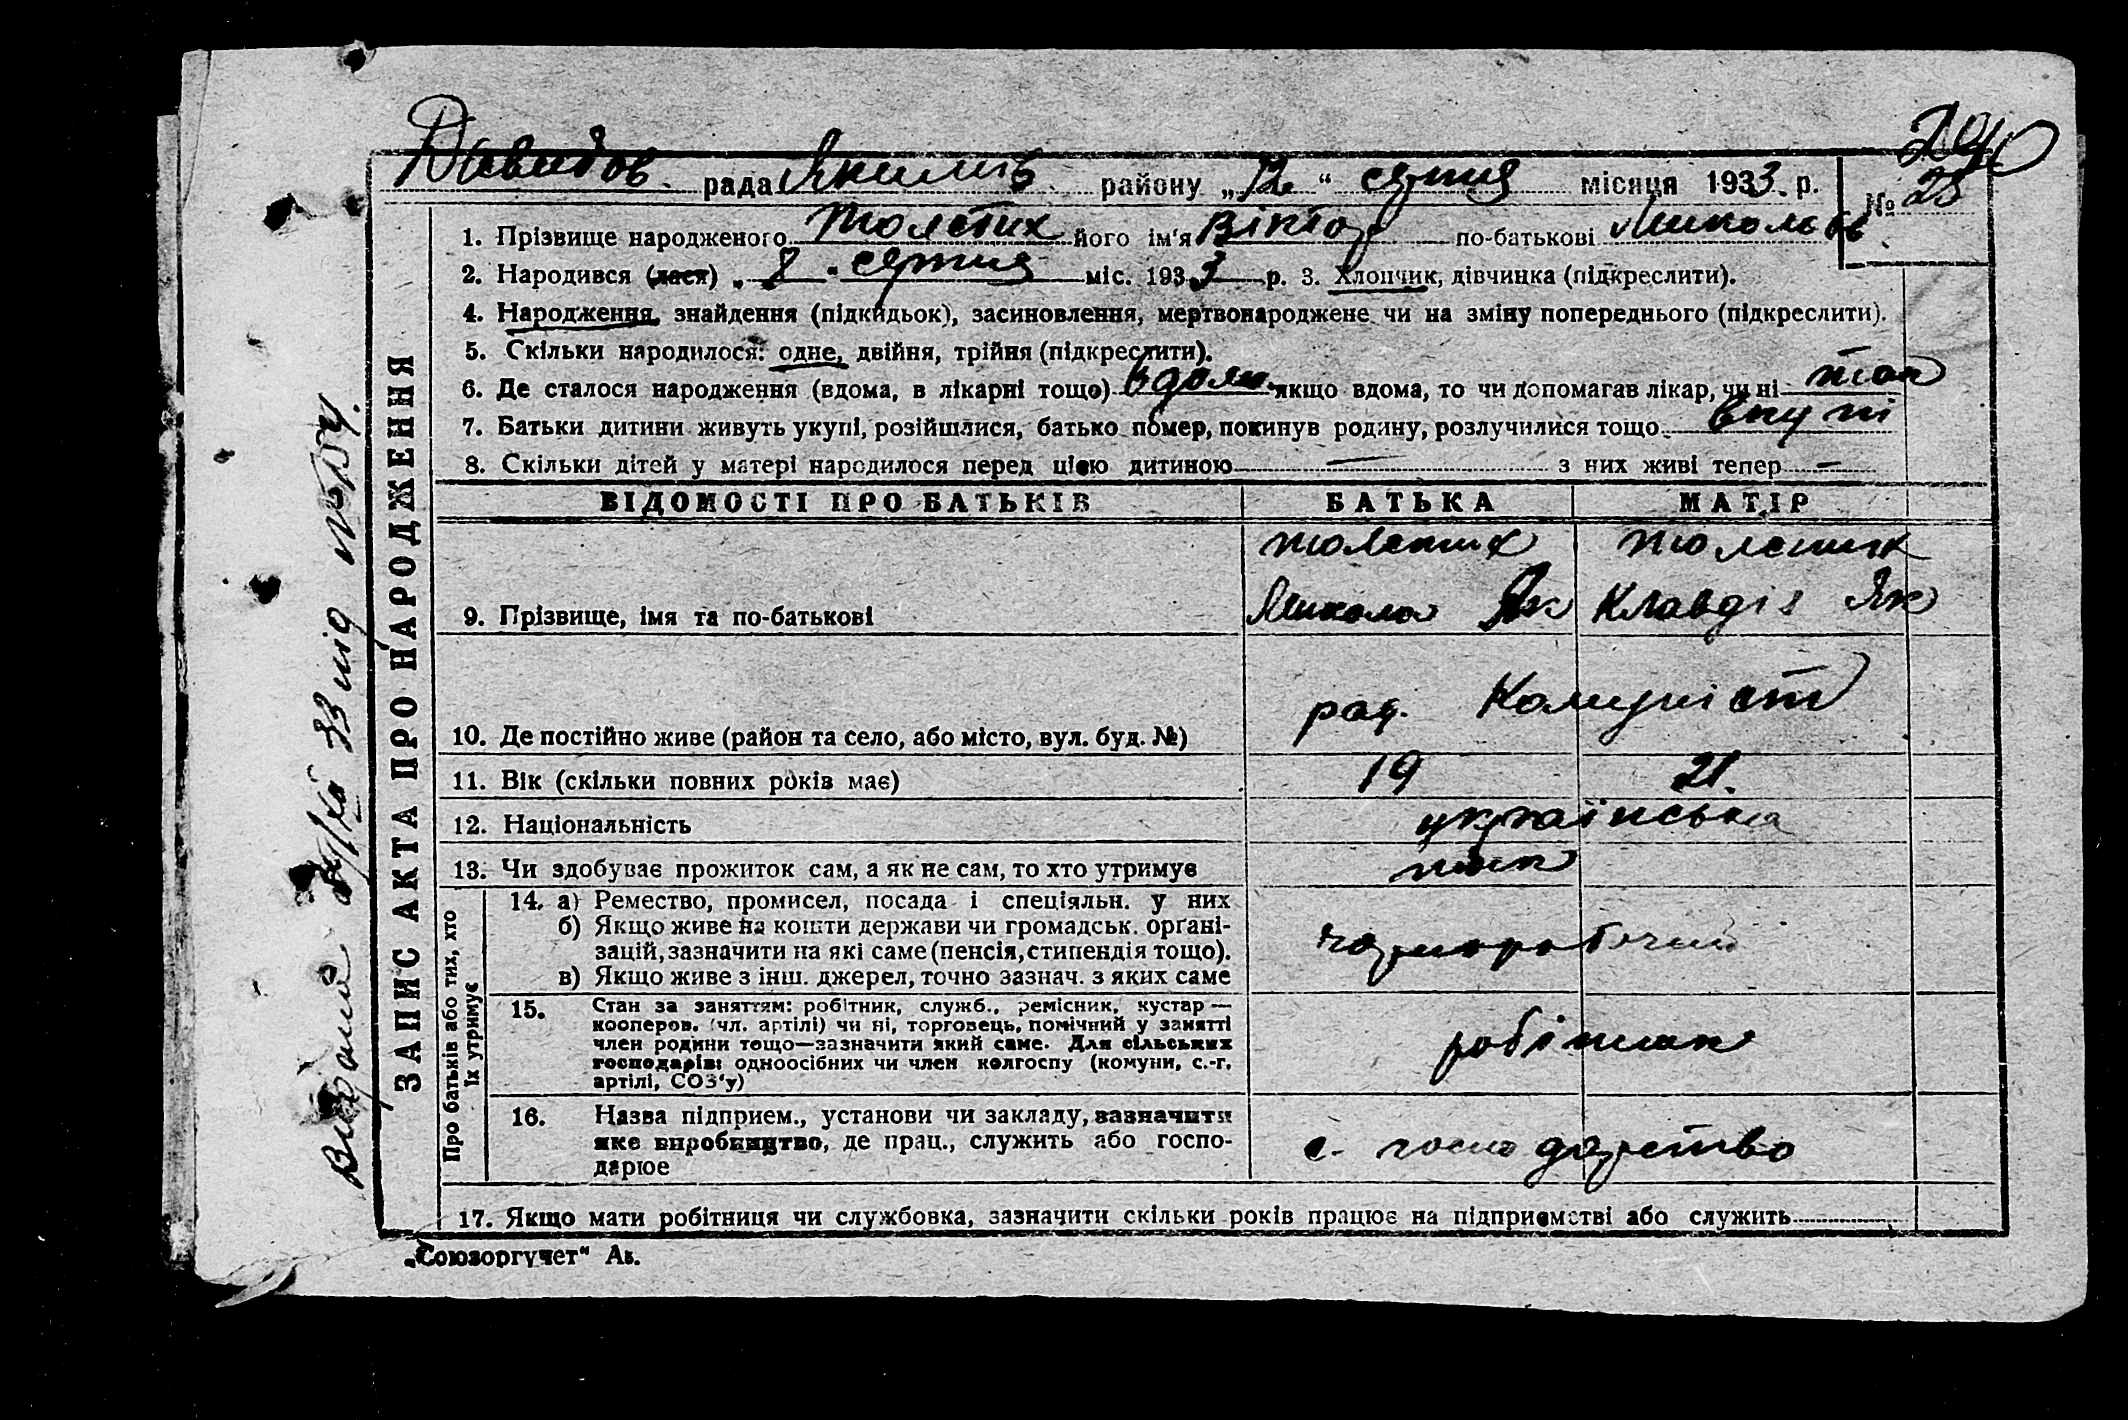 290
Давидов. рада Якимів. району „12“ серпня місяця 1933 р. № 23
1. Прізвище народженого Толстих його ім'я Віктор по-батькові Микольов.
2. Народився (лася) „8“ серпня міс. 1933 р. 3. Хлопчик, дівчинка (підкреслити).
4. Народження, знайдення (підкидьок), засиновлення, мертвонароджене чи на зміну попереднього (підкреслити).
5. Скільки народилося: одне, двійня, трійня (підкреслити).
6. Де сталося народження (вдома, в лікарні тощо) вдома якщо вдома, то чи допомагав лікар, чи ні
7. Батьки дитини живуть укупі, розійшлися, батько помер, покинув родину, розлучилися тощо вкупі
8. Скільки дітей у матері народилося перед цією дитиною — з них живі тепер —
ЗАПИС АКТА ПРО НАРОДЖЕННЯ
ВІДОМОСТІ ПРО БАТЬКІВ БАТЬКА МАТІР
Толстих Толстих
9. Прізвище, імя та по-батькові Микола Як Клавдія Як
10. Де постійно живе (район та село, або місто, вул. буд. №) рад. Комуніст
11. Вік (скільки повних років має) 19 21.
12. Національність українська
13. Чи здобуває прожиток сам, а як не сам, то хто утримує
Про батьків або тих, хто їх утримує
14. а) Ремество, промисел, посада і спеціяльн. у них
б) Якщо живе на кошти держави чи громадськ. орґані-
зацій, зазначити на які саме (пенсія, стипендія тощо).
в) Якщо живе з інш. джерел, точно зазнач. з яких саме
чорноробочий
15. Стан за заняттям: робітник, служб., ремісник, кустар —
кооперов. (чл. артілі) чи ні, торговець, помічний у занятті
член родини тощо—зазначити який саме. Для сільських
господарів: одноосібних чи член колгоспу (комуни, с.-г.
артілі, СОЗ'у)
робітник
16. Назва підприєм., установи чи закладу, зазначити
яке виробництво, де прац., служить або госпо-
дарює
с. господарство
17. Якщо мати робітниця чи службовка, зазначити скільки років працює на підприємстві або служить
„Союзоргучет“ Ав.